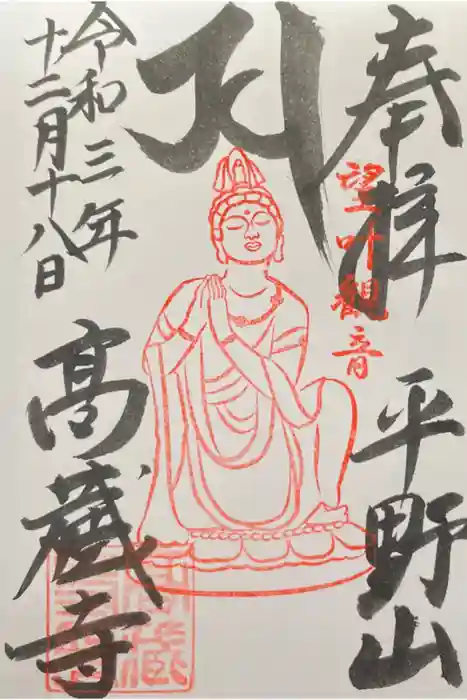 奉拝
平野山
望叶観音
高蔵寺
令和三年
十二月十八日